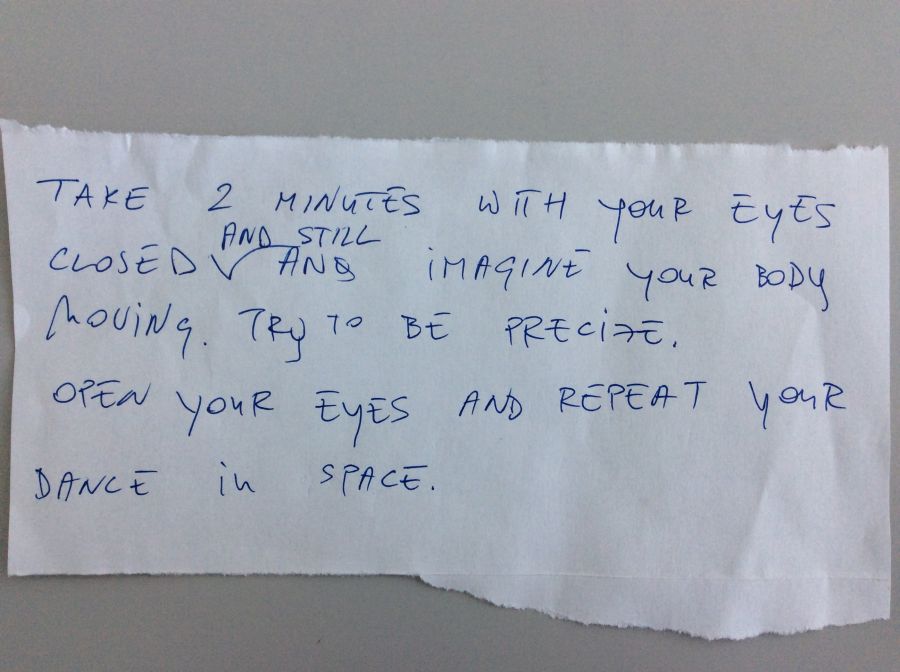 TAKE 2 MINUTES WITH YOUR EYES
AND STILL
CLOSED √ AND IMAGINE YOUR BODY
MOVING. TRY TO BE PRECIZE.
OPEN YOUR EYES AND REPEAT YOUR
DANCE in SPACE.